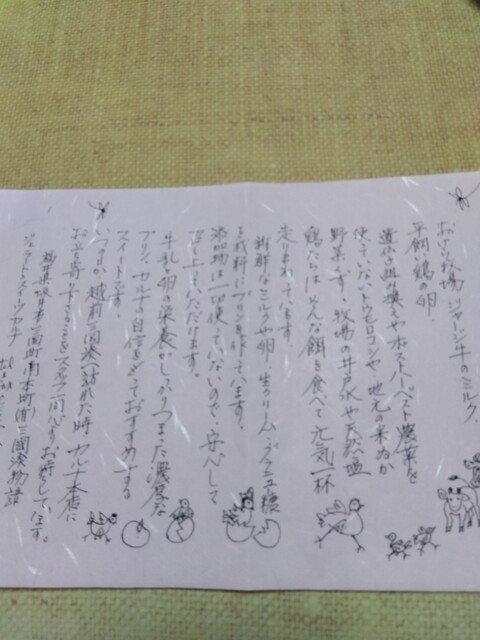 おけら牧場 ジャージー牛のミルク、
平飼い鶏の卵。
遺伝子組み換えやポストハーベスト農薬を
使っていないトウモロコシや、地元の米ぬか
野菜です。牧場の井戸水や天然塩
鶏たちはそんな餌を食べて元気一杯
走りまわっています
新鮮なミルクや卵、生クリーム・グラニュー糖
を材料にプリンを作っています。
添加物は一切使っていないので、安心して
召し上っていただけます。
牛乳と卵の栄養がしっかりつまった濃厚な
プリン、カルナの自信をもっておすすめする
スイートです。
いつか越前三国湊へ訪れた時、カルナ本店に
お立ち寄り下さることをスタッフ一同心よりお待ちしてます。
福井県坂井市三国町南本町 三國湊物語
ジェラート・スイーツ カルナ